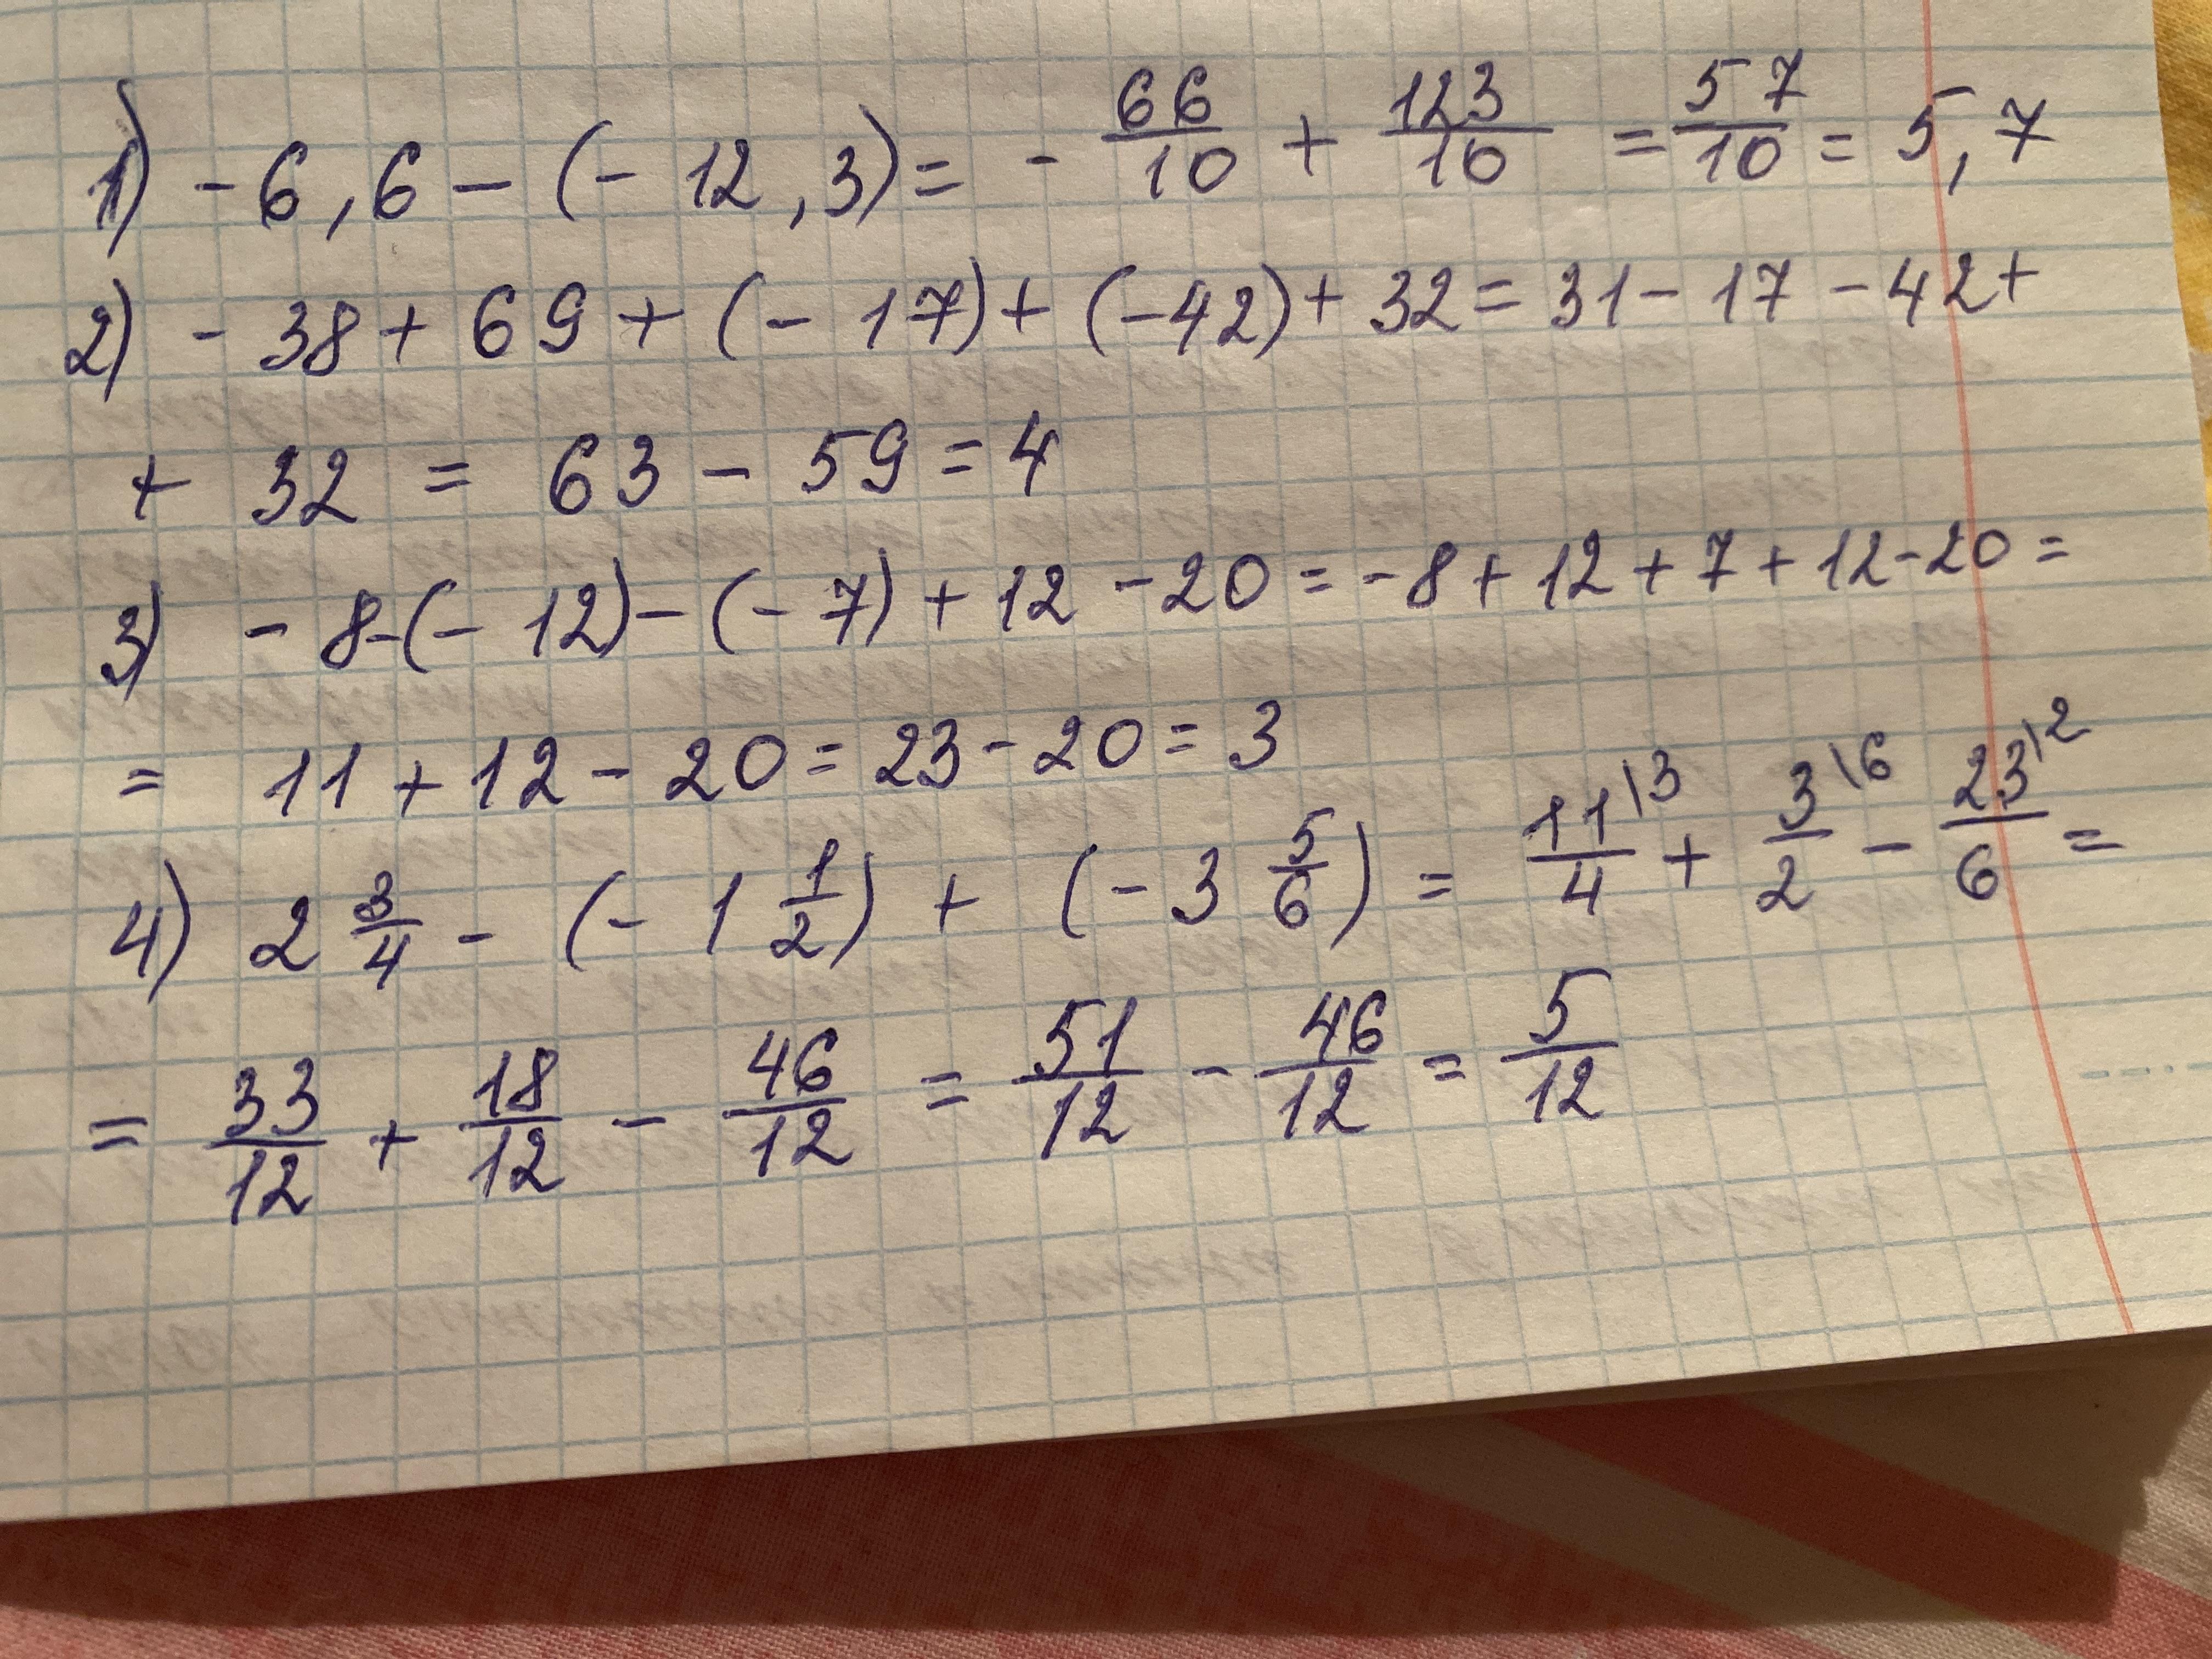 1) -6,6 - (-12,3) = - 66/10 + 123/10 = 57/10 = 5,7
2) -38 + 69 + (-17) + (-42) + 32 = 31 - 17 - 42 +
+ 32 = 63 - 59 = 4
3) -8 - (-12) - (-7) + 12 - 20 = -8 + 12 + 7 + 12 - 20 =
= 11 + 12 - 20 = 23 - 20 = 3
4) 2 3/4 - (-1 1/2) + (-3 5/6) = 11\3/4 + 3\6/2 - 23\2/6 =
= 33/12 + 18/12 - 46/12 = 51/12 - 46/12 = 5/12